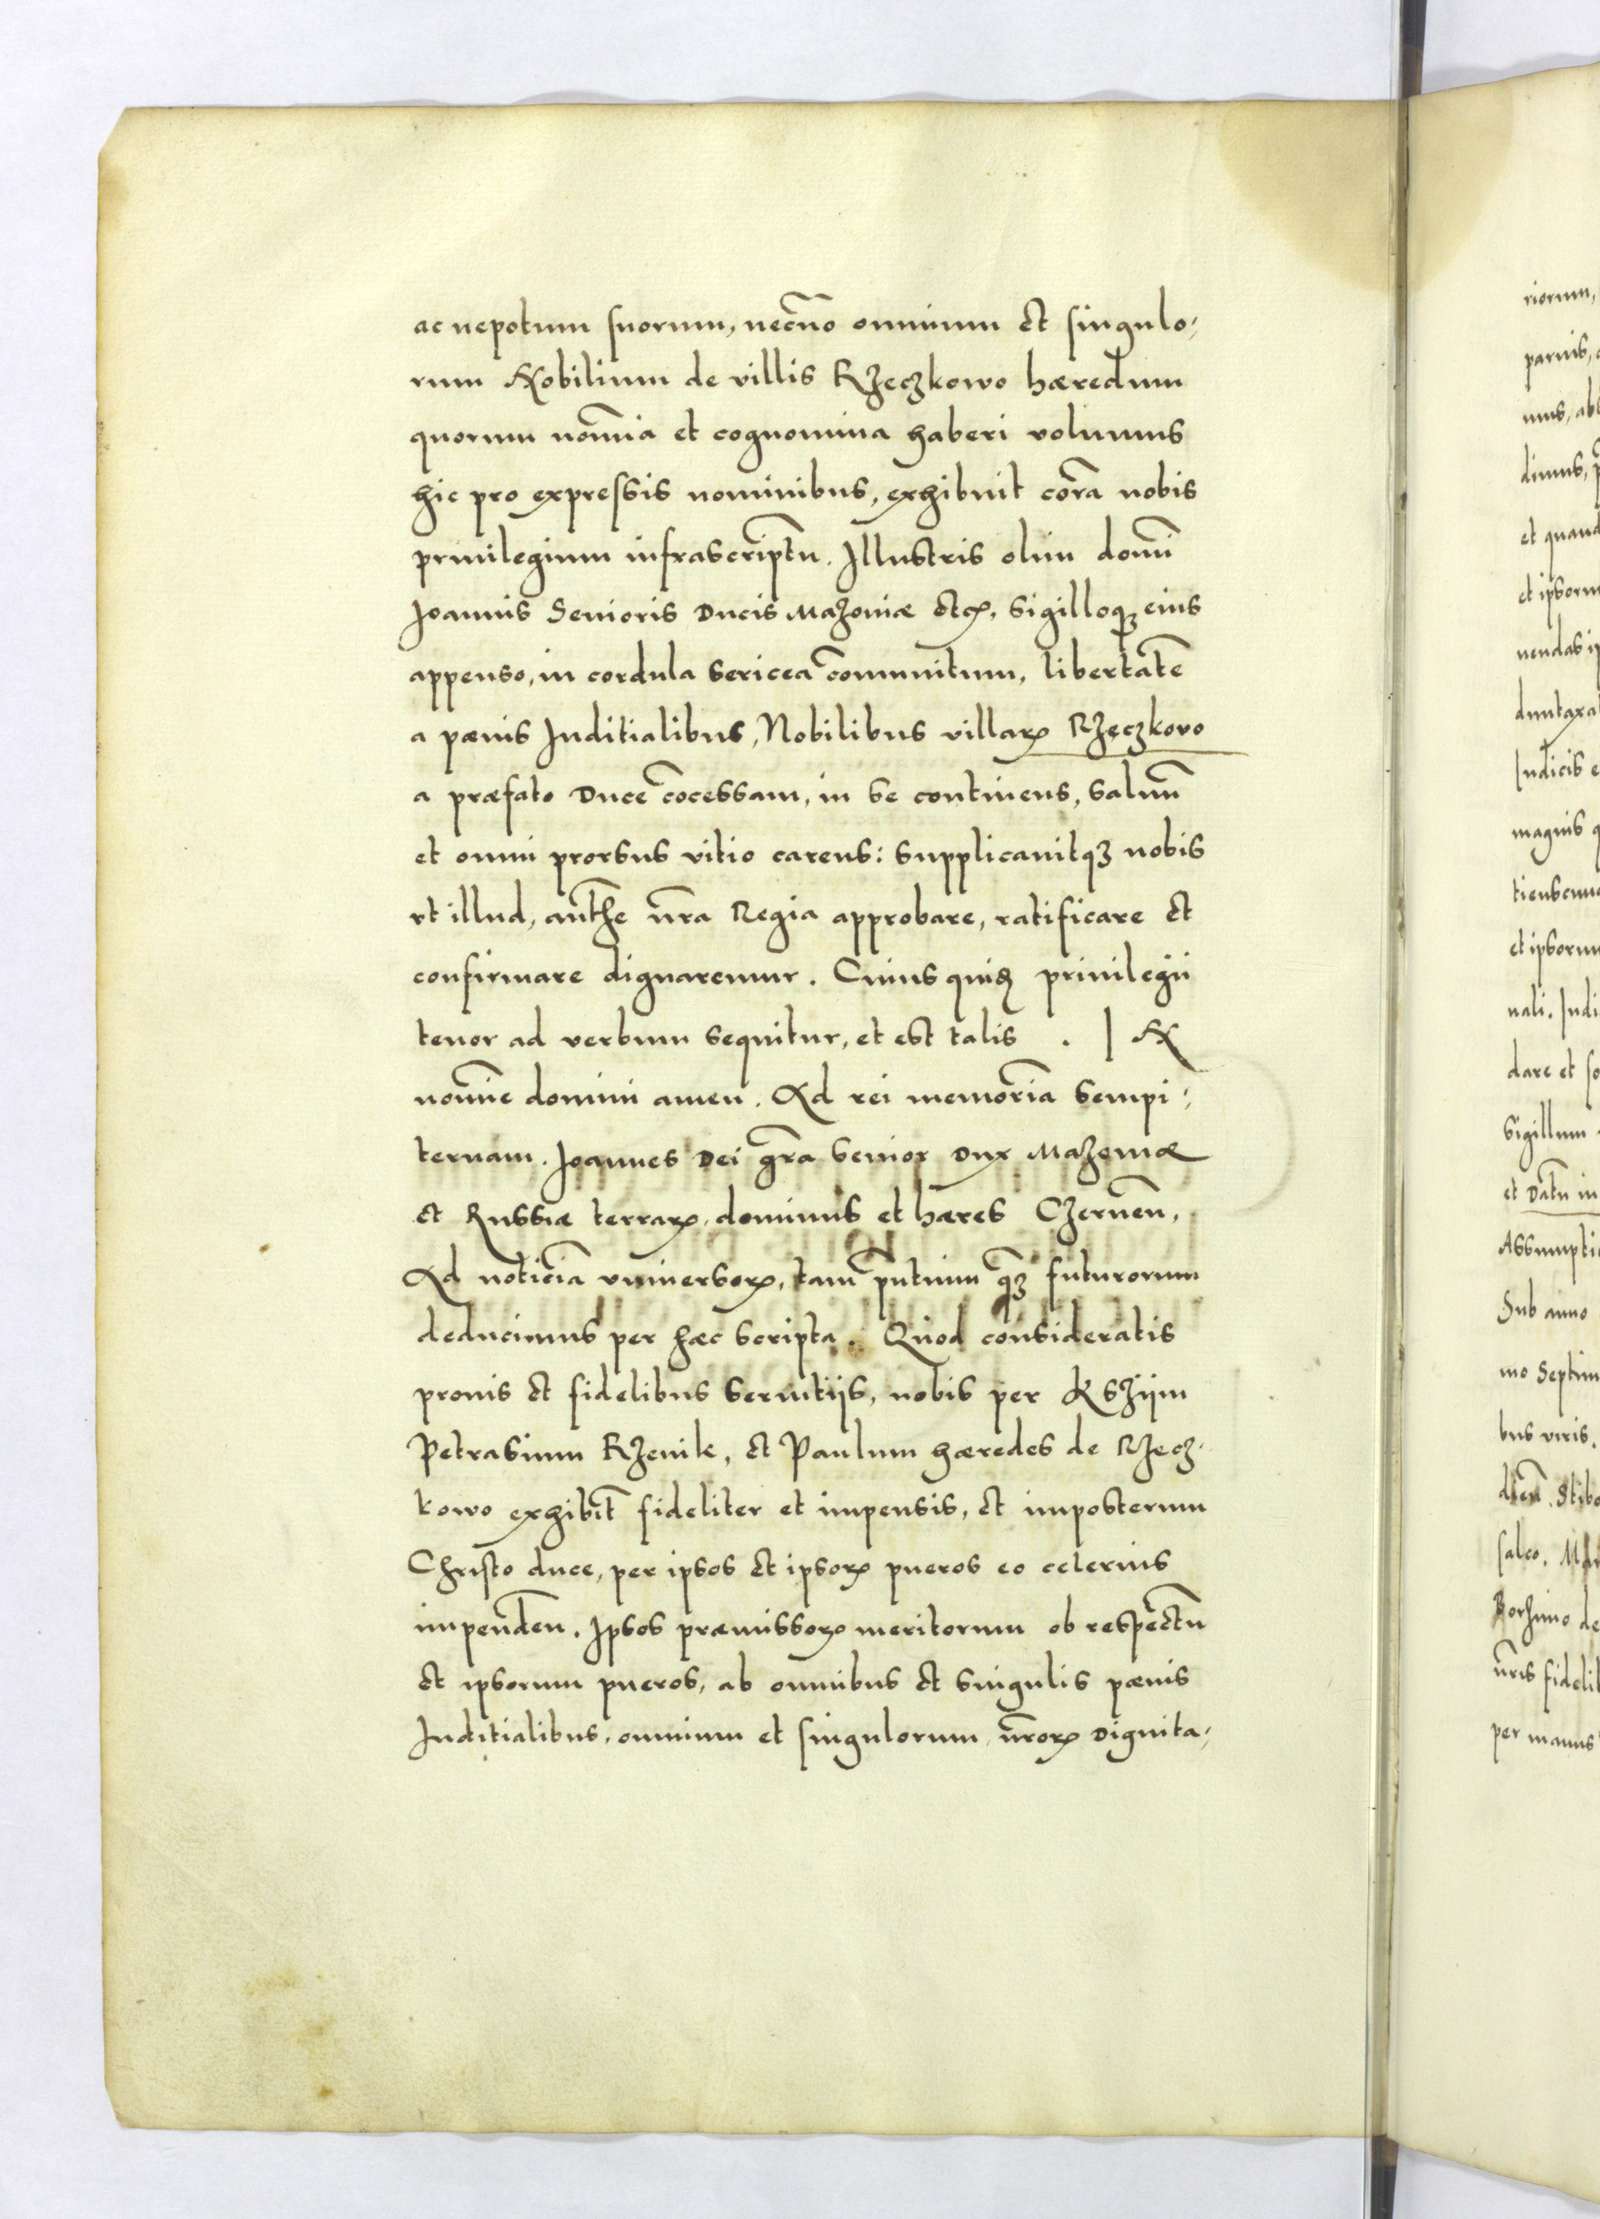 ac nepotum suorum, necnõ omnium et singulo⸗
rum Nobilium de villis Rzeczkowo hæredum
quorum noĩnia et cognomina haberi volumus
hic pro expressis nominibus, exhibuit corã nobis
priuilegium infrascriptũ. Illustris olim domĩ
Joannis Senioris Ducis Mazoniæ etc̃, sigilloqȝ eius
appenso, in cordula sericea cõmunitum, libertatẽ
a pænis Juditialibus, Nobilibus villarꝝ Rzeczkovo
a præfato Duce cõcessam, in se continens, saluũ
et omni prorsus vitio carens: supplicauitqȝ nobis
vt illud, autħe nr̃a Regia approbare, ratificare et
confirmare dignaremur. Cuius quidẽ priuilegii
tenor ad verbum sequitur, et est talis . | N
nomĩe domini amen. Ad rei memoriã sempi⸗
ternam. Joannes Dei gr̃a senior Dux Mazoniæ
et Russiæ terrarꝝ, dominus et hæres Czernẽn,
Ad noticiã vniuersorꝝ, tam pñtium qȝ̃ futurorum
deducimus per hæc scripta. Quod consideratis
pronis et fidelibus seruitiis, nobis per Kszijm
Petrasium Rzenik, et Paulum hæredes de Rzecz⸗
kowo exhibit̃ fideliter et impensis, et imposterum
Christo duce, per ipsos et ipsorꝝ pueros eo celerius
impendẽn. Ipsos præmissorꝝ meritorum ob respectũ
et ipsorum pueros, ab omnibus et singulis pænis
Juditialibus, omnium et singulorum nr̃orꝝ Dignita⸗
riorum,
paruis,
mus,
dimus,
et ipsorum
nendas
duntaxat
Judicis
magnis
et ipsorum
nali. Judi
dare et
Sigillum
et Datũ in
Assumpti
Sub anno
mo Septim
bus viris.
per manus